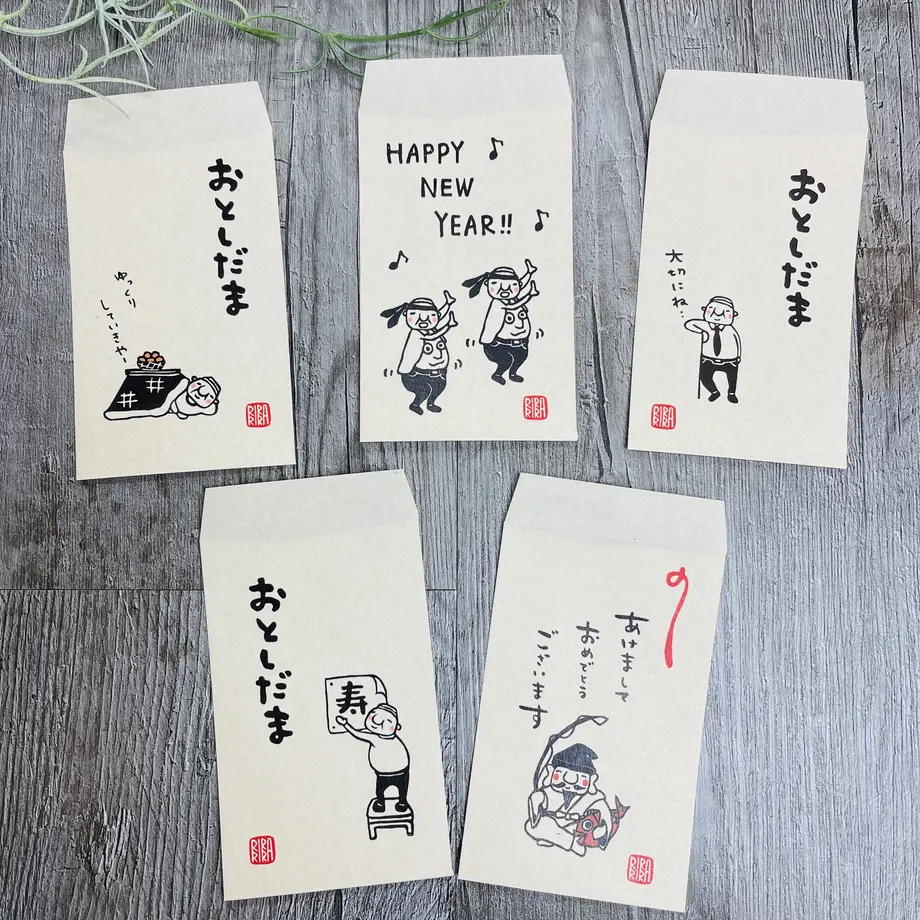 おとしだま
ゆっくり
していきやー
HAPPY
NEW
YEAR!!
おとしだま
大切にね…
おとしだま
寿
あけまして
おめでとう
ございます